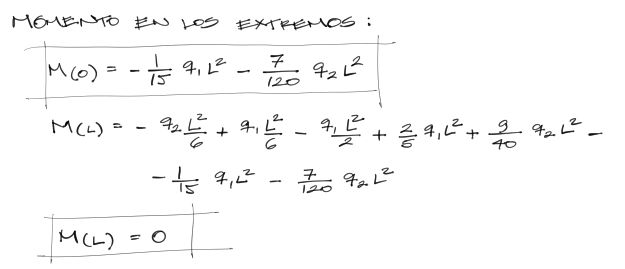 MOMENTO EN LOS EXTREMOS:
M(0) = - 1/15 q₁L² - 7/120 q₂L²
M(L) = - q₂ L²/6 + q₁ L²/6 - q₁ L²/2 + 2/5 q₁L² + 9/40 q₂L² -
- 1/15 q₁L² - 7/120 q₂L²
M(L) = 0